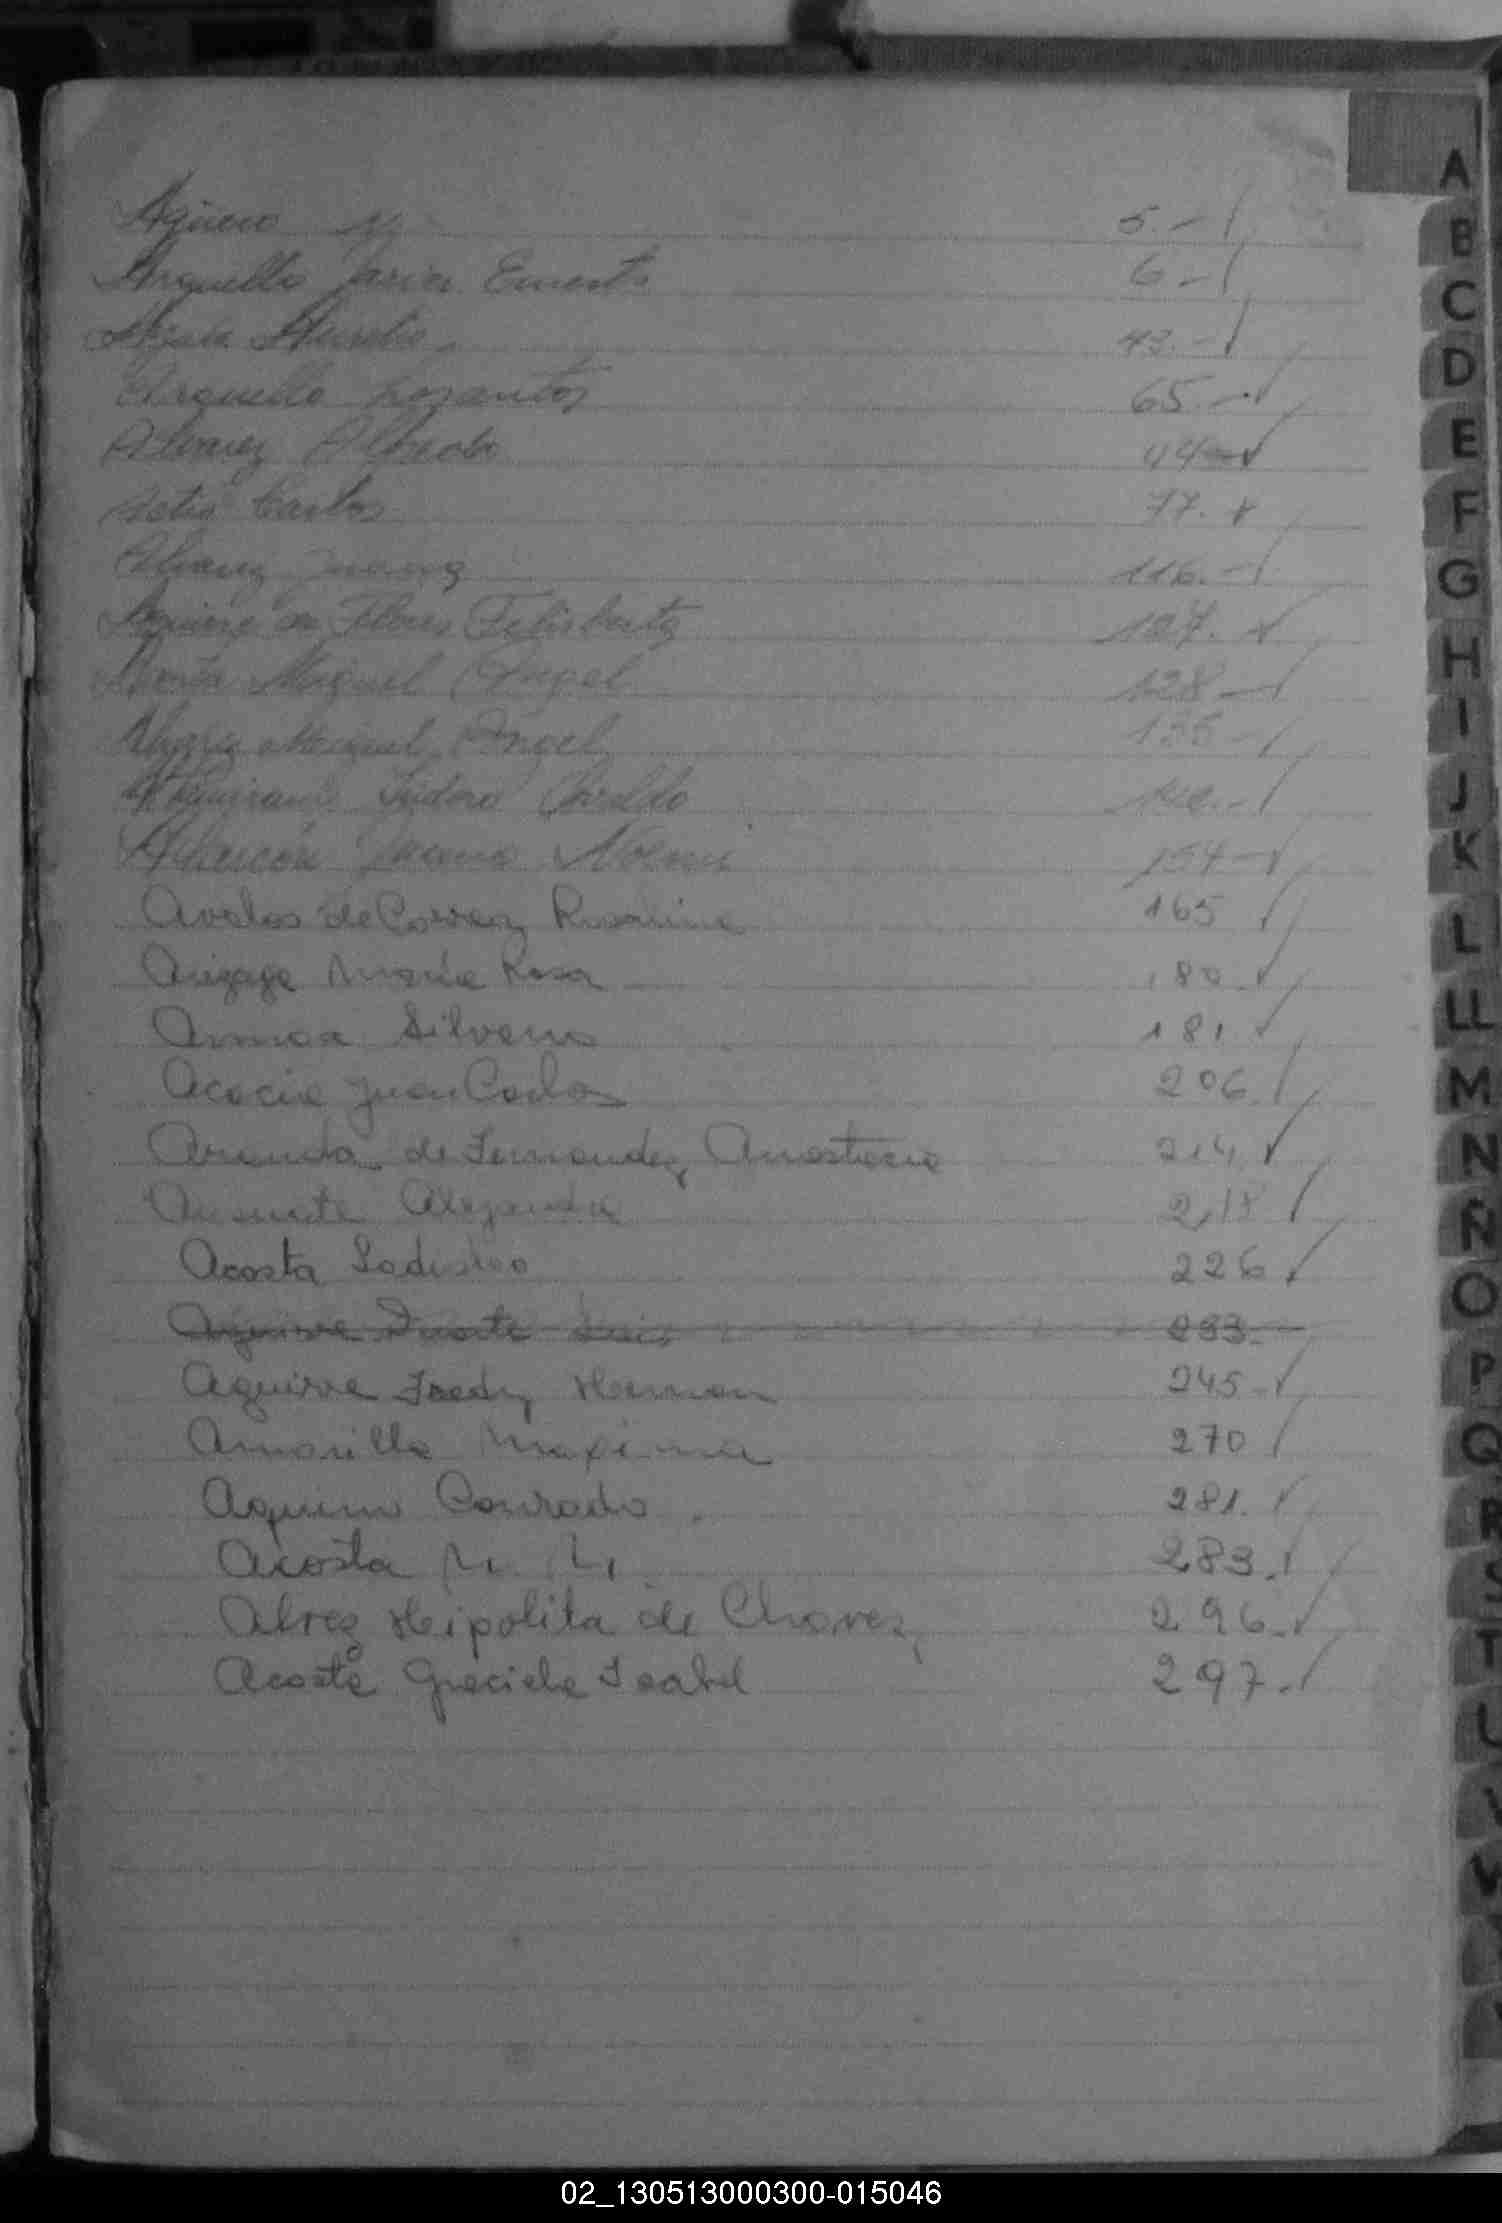 Agüero N. 5.-
Arguello Javier Ernesto 6-
Aurelio 43.-
Arguello Losantos 65.-
Alvarez Alfredo 44-
Actis Carlos 77.
Alvarez Juana 116.-
Aguirre de Flores Felisberta 127.
Acosta Miguel Angel 128-
Miguel Angel 135-
Isidoro
Alarcón Juana Noemi 154-
Avalos de Correa, Rosalina 165
Arizaga María Rosa 180.
Armoa Silverio 181.
Acacia Juan Carlos 206
Aranda de Fernandez, Anastacia 214
Alejandra 218
Acosta Ladislao 226
Aguirre Duarte Luis 233.
Aguirre Fredy Hernan 245-
Amarilla Maxima 270
Aquino Conrado 281.
Acosta M. L. 283.
Alvez Hipolita de Chavez, 296.
Acosta Graciela Isabel 297.
A
B
C
D
E
F
G
H
I
J
K
L
LL
M
N
Ñ
O
P
Q
R
S
T
U
V
02_130513000300-015046